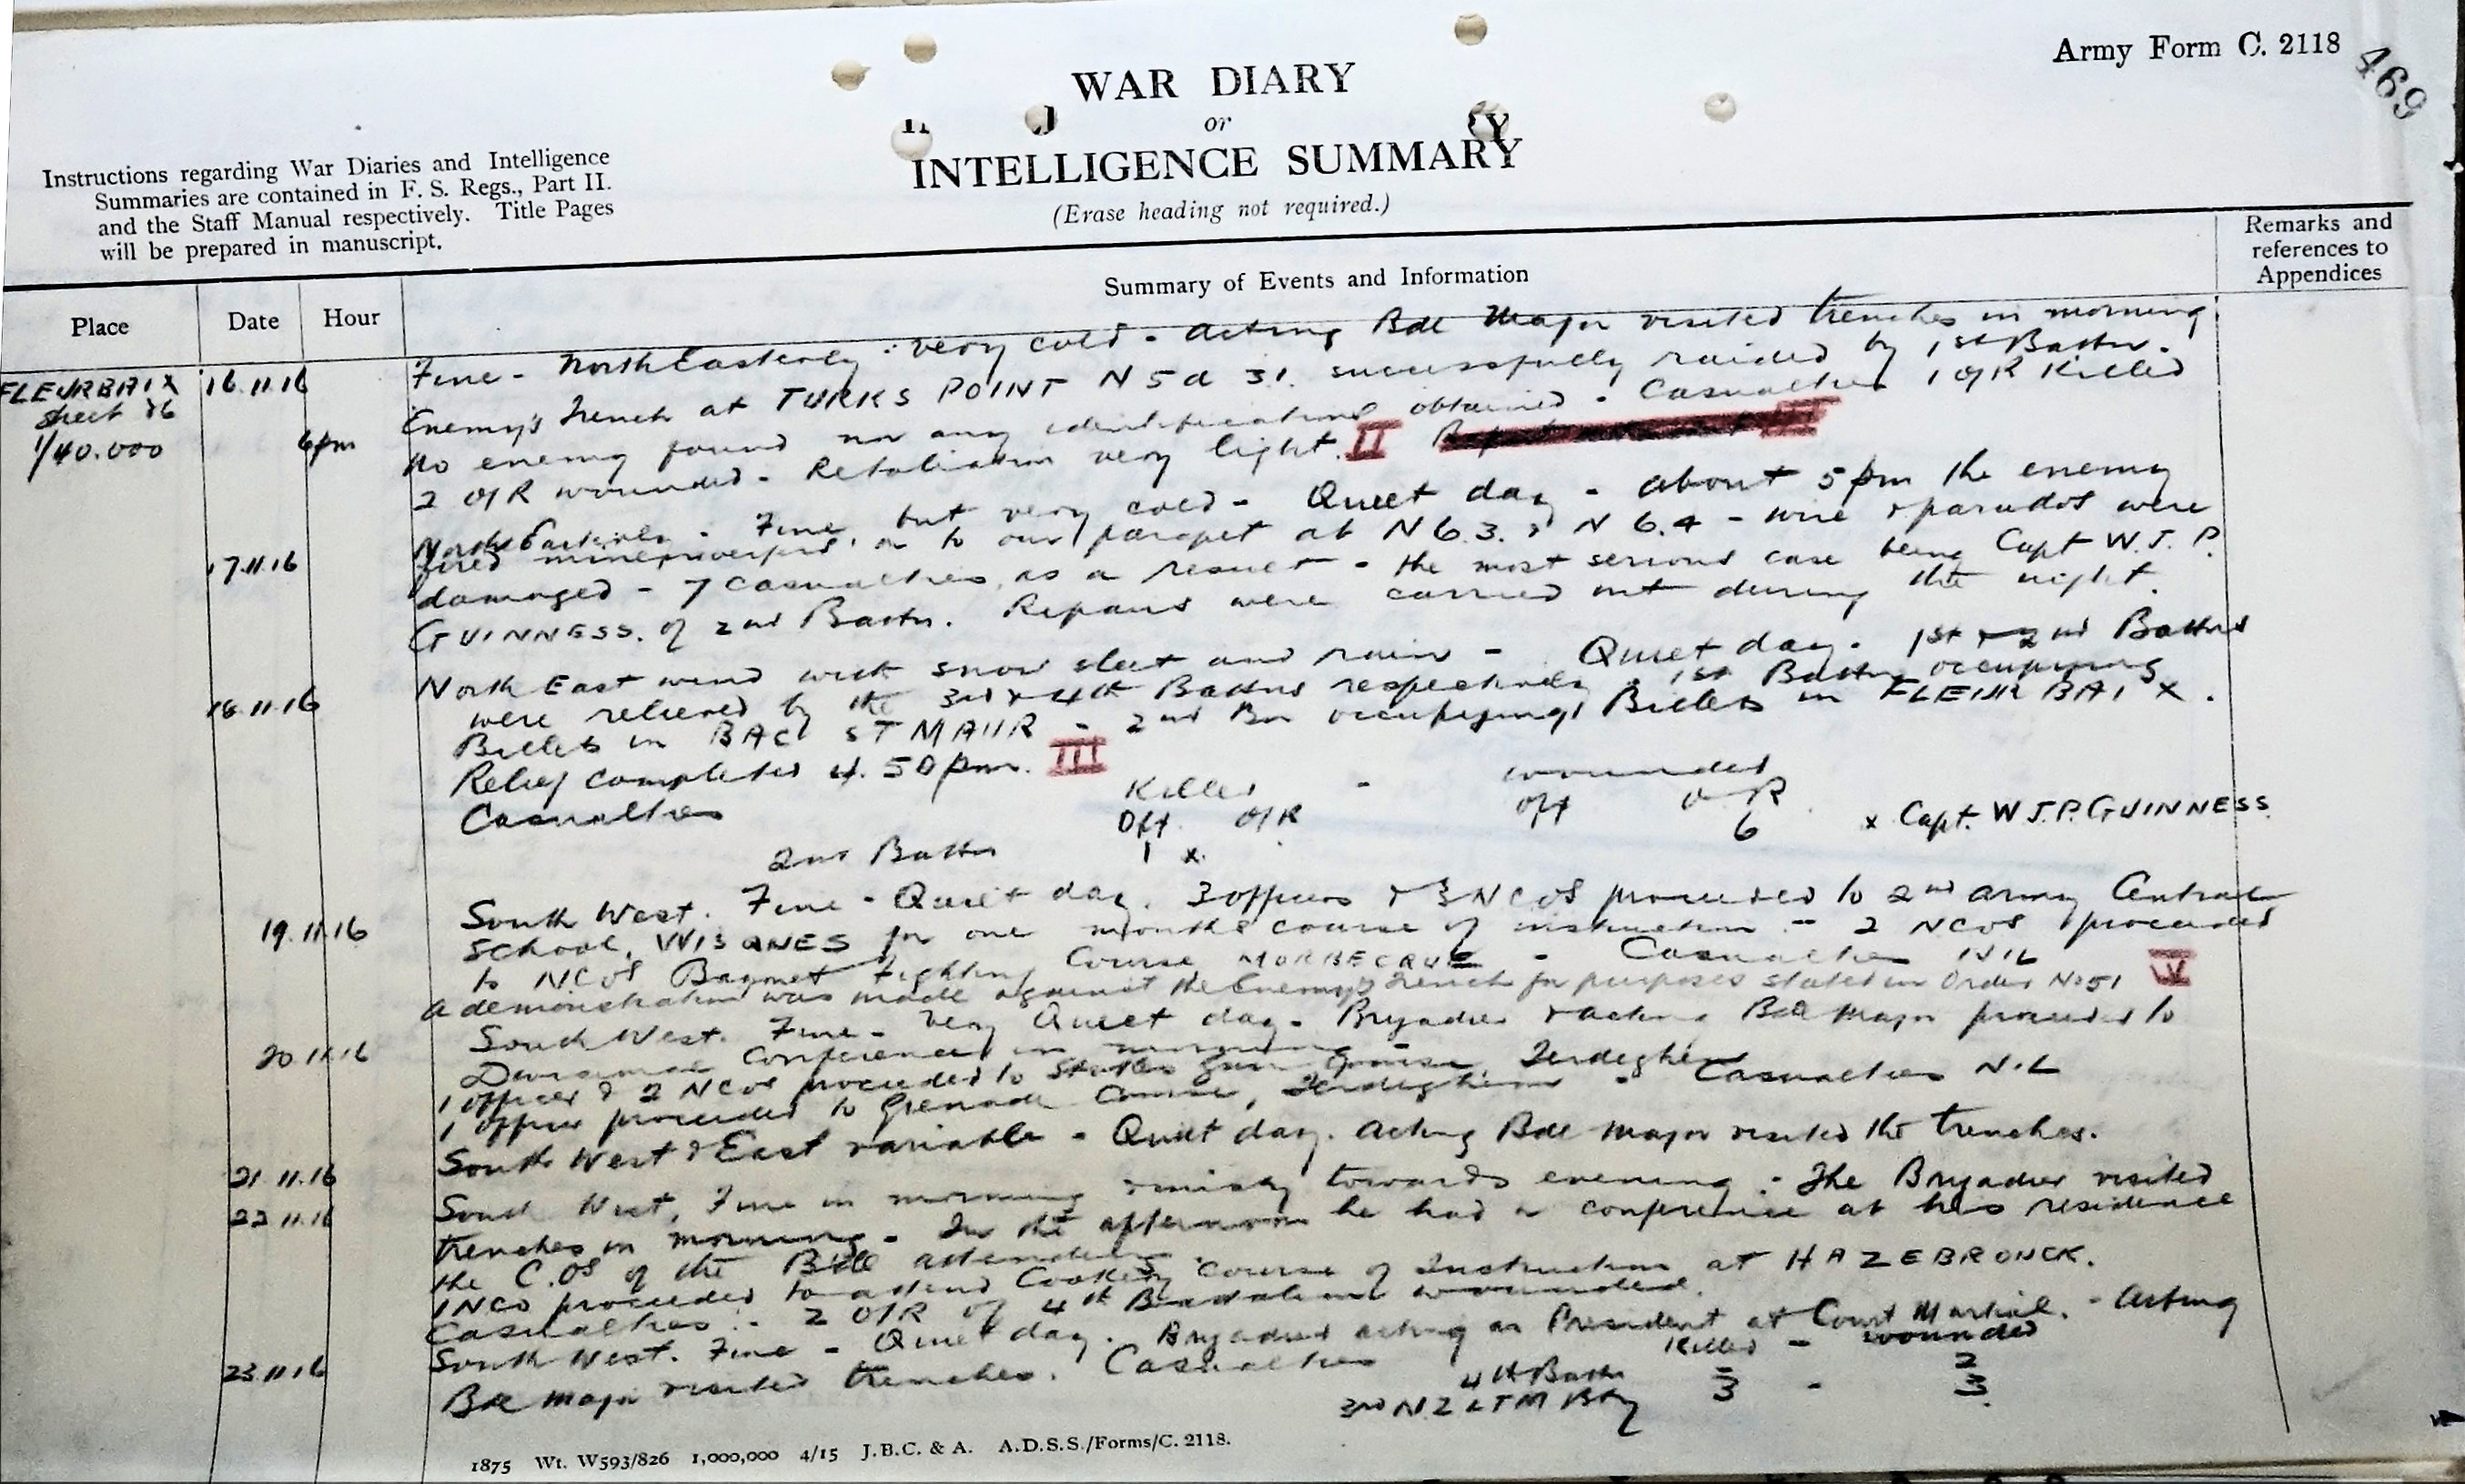 Army Form C. 2118
469
WAR DIARY
or
INTELLIGENCE SUMMARY
(Erase heading not required.)
Instructions regarding War Diaries and Intelligence
Summaries are contained in F. S. Regs., Part II.
and the Staff Manual respectively. Title Pages
will be prepared in manuscript.
Place
Date
Hour
Summary of Events and Information
Remarks and
references to
Appendices
FLEURBAIX
Sheet 36
1/40.000
16.11.16
Fine - North Easterly : very cold - Acting Bde Major visited trenches in morning.
6pm
Enemy's Trench at TURKS POINT N 5 d 31. successfully raided by 1st Battn.
No enemy found nor any identifications obtained. Casualties 1 O/R Killed
2 O/R wounded - Retaliation very light. II
17.11.16
North Easterly - Fine, but very cold - Quiet day - about 5 pm the enemy
fired minenwerfers on to our parapet at N 6.3. & N 6.4 - wire & parados were
damaged - 7 casualties as a result - the most serious case being Capt W. J. P.
GUINNESS. of 2nd Battn. Repairs were carried out during the night.
18.11.16
North East wind with snow sleet and rain - Quiet day. 1st & 2nd Battns
were relieved by the 3rd & 4th Battns respectively, 1st Battn occupying
Billets in BAC ST MAUR - 2nd Bn occupying Billets in FLEURBAIX.
Relief completed 4.50 pm. III
Casualties Killed - wounded
Off. O/R Off O R
2nd Battn 1 x. 6 x Capt. W J.P. GUINNESS.
19.11.16
South West. Fine - Quiet day. 3 officers & 3 NCOs proceeded to 2nd Army Central
School, WISQNES for one months course of instruction - 2 NCOs proceeded
to NCOs Bayonet Fighting Course MORBECQUE - Casualties NIL
A demonstration was made against the Enemy's Trench for purposes stated in Order No 51 IV
20.11.16
South West. Fine - Very Quiet day. Brigadier & acting Bde Major proceeded to
Divisional Conference in morning.
1 officer & 2 NCOs proceeded to Stokes Gun Course, Terdeghem
1 officer proceeded to Grenade Course, Terdeghem - Casualties NIL
21.11.16
South West & East variable - Quiet day. Acting Bde Major visited the trenches.
22.11.16
South West, Fine in morning & misty towards evening - The Brigadier visited
trenches in morning - In the afternoon he had a conference at his residence
the C.Os of the Bde attending.
1 NCO proceeded to attend Cookery course of Instruction at HAZEBRONCK.
Casualties - 2 O/R of 4th Battalion wounded.
23.11.16
South West. Fine - Quiet day. Brigadier acting as President at Court Martial. - Acting
Bde Major visited trenches. Casualties Killed - wounded
4th Battn - 2
3rd N Z L T M Bty 3 - 3
1875 Wt. W593/826 1,000,000 4/15 J.B.C. & A. A.D.S.S./Forms/C. 2118.